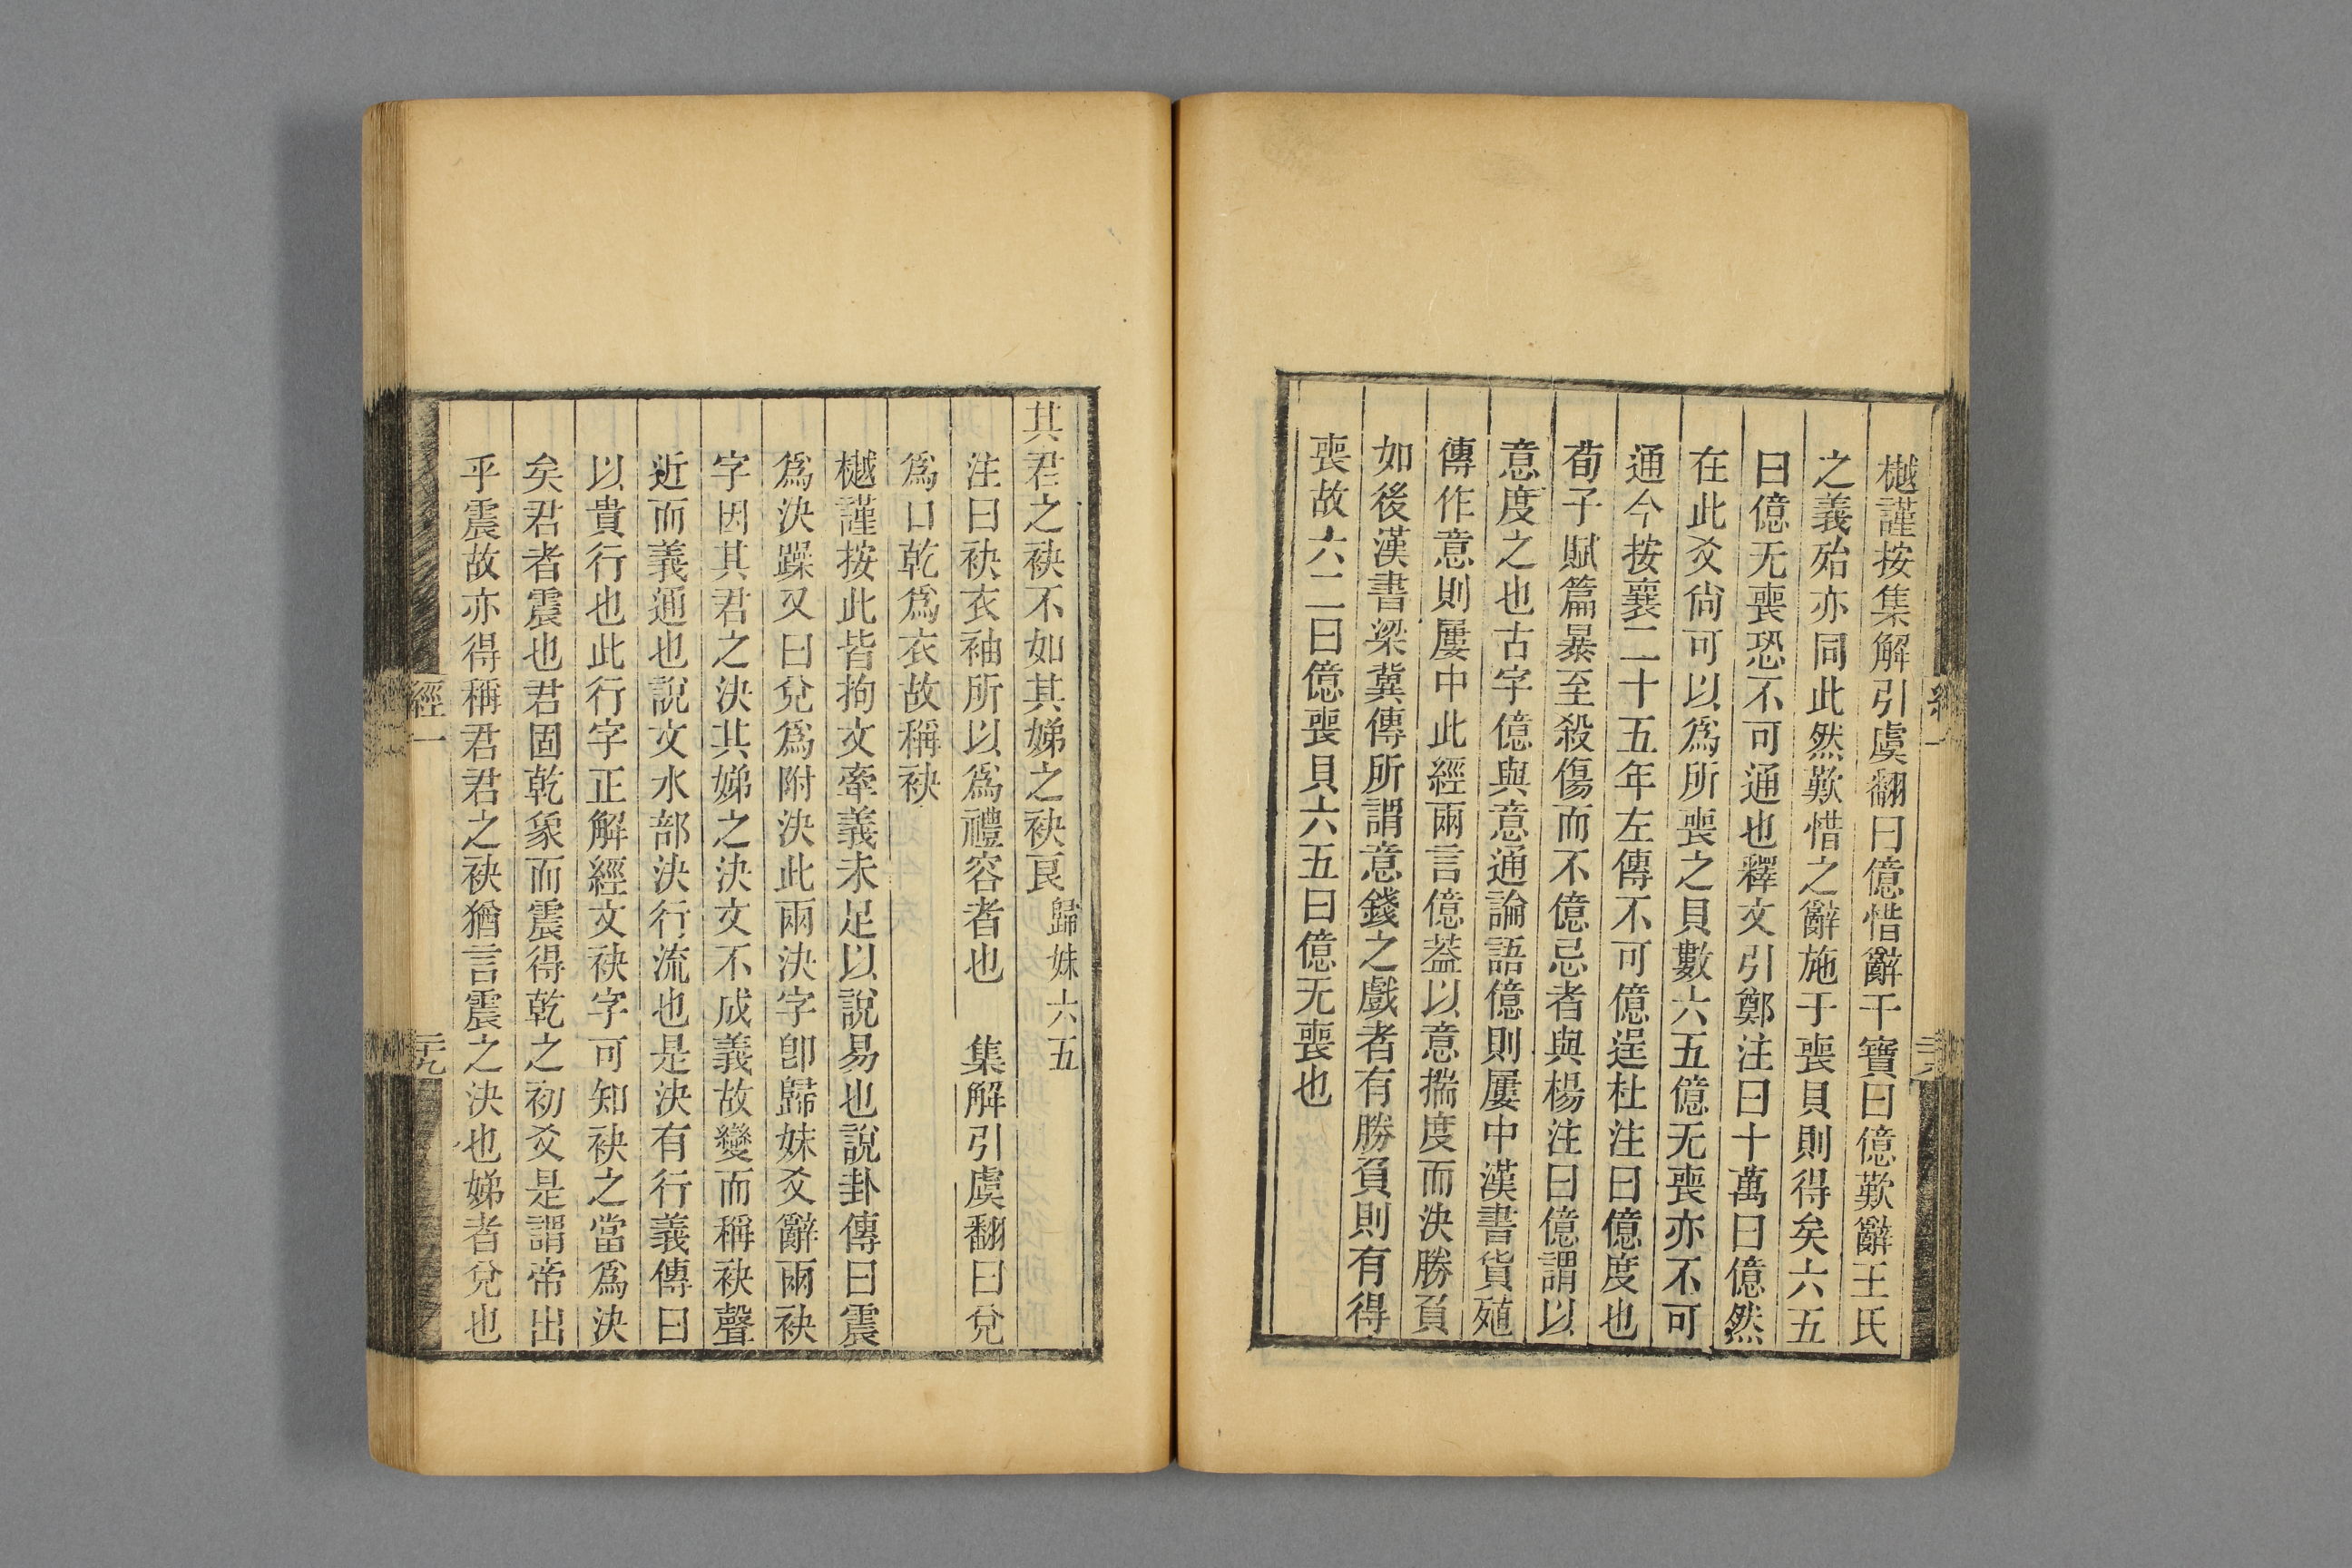 樾謹按集解引虞翻曰億惜辭干寶曰億歎辭王氏
之義殆亦同此然歎惜之辭施于喪貝則得矣六五
曰億无喪恐不可通也釋文引鄭注曰十萬曰億然
在此爻尙可以爲所喪之貝數六五億无喪亦不可
通今按襄二十五年左傳不可億逞杜注曰億度也
荀子賦篇暴至殺傷而不億忌者與楊注曰億謂以
意度之也古字億與意通論語億則屢中漢書貨殖
傳作意則屢中此經兩言億蓋以意揣度而決勝負
如後漢書梁冀傳所謂意錢之戲者有勝負則有得
喪故六二曰億喪貝六五曰億无喪也
其君之袂不如其娣之袂良歸妹六五
注曰袂衣袖所以爲禮容者也　集解引虞翻曰兌
爲口乾爲衣故稱袂
樾謹按此皆拘文牽義未足以說易也說卦傳曰震
爲決躁又曰兌爲附決此兩決字卽歸妹爻辭兩袂
字因其君之決其娣之決文不成義故變而稱袂聲
近而義通也說文水部決行流也是決有行義傳曰
以貴行也此行字正解經文袂字可知袂之當爲決
矣君者震也君固乾象而震得乾之初爻是謂帝出
乎震故亦得稱君君之袂猶言震之決也娣者兌也
經一
二十九